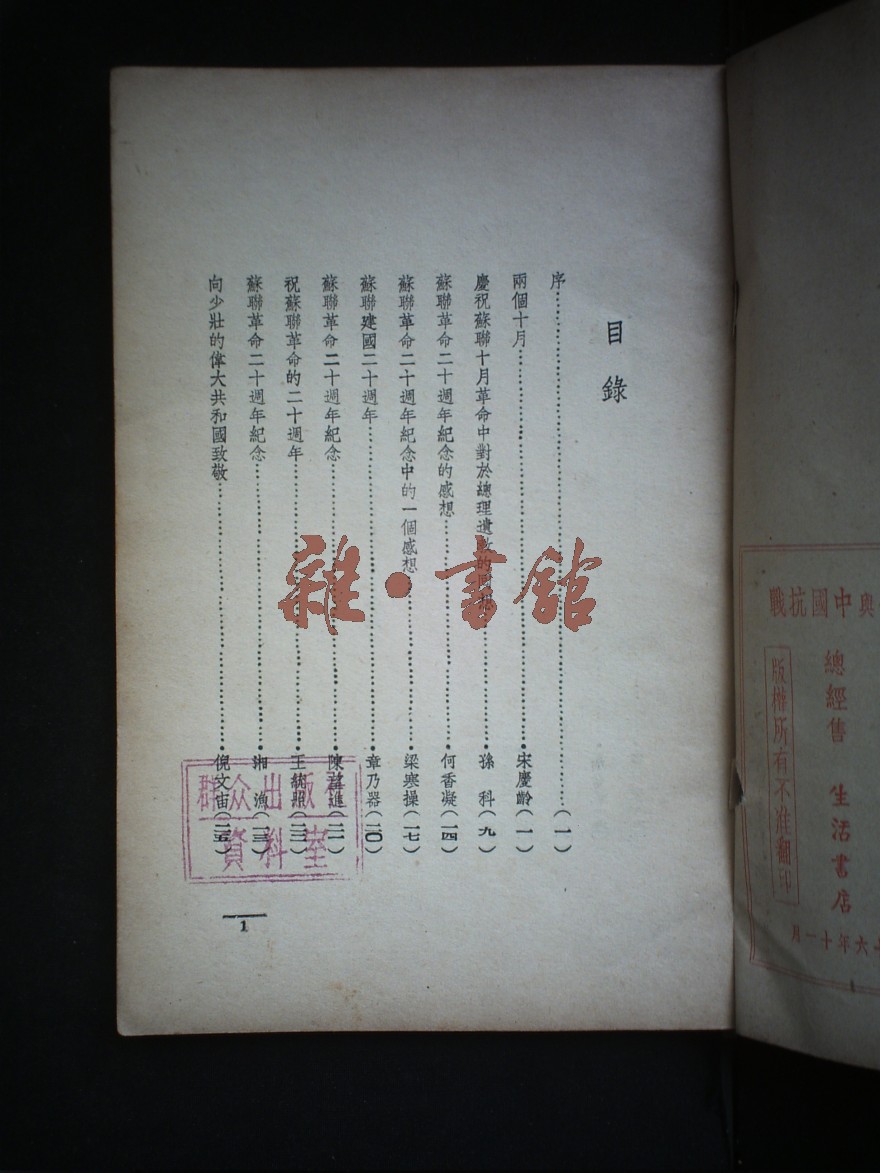 目錄
序……(一)
兩個十月……宋慶齡(一)
慶祝蘇聯十月革命中對於總理遺教的回想……孫科(九)
蘇聯革命二十週年紀念的感想……何香凝(一四)
蘇聯革命二十週年紀念中的一個感想……梁寒操(一七)
蘇聯建國二十週年……章乃器(二〇)
蘇聯革命二十週年紀念……陳望道
祝蘇聯革命的二十週年……王統照
蘇聯革命二十週年紀念……湘漁
向少壯的偉大共和國致敬……倪文宙(二五)
1
群众出版社
資料室
雜·書館
與中國抗戰
總經售 生活書店
版權所有不准翻印
六年十一月